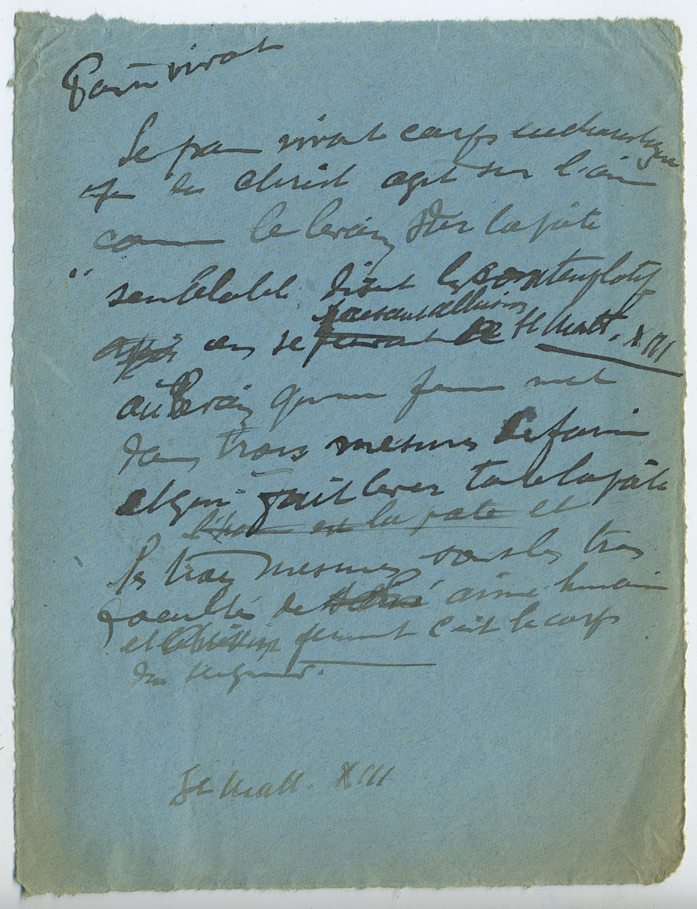 Pain vivant
Le pain vivant corps eucharistique
du Christ agit sur l'âme
comme le levain sur la pâte
" semblable disent les contemplatifs
en se faisant allusion St Matt. XIII
au levain qu'une femme met
dans trois mesures de farine
et qui fait lever toute la pâte
l'âme est la pate et
les trois mesures sont les trois
facultés de âme humaine
et ferment c'est le corps
du Seigneur.
St Matt. XIII